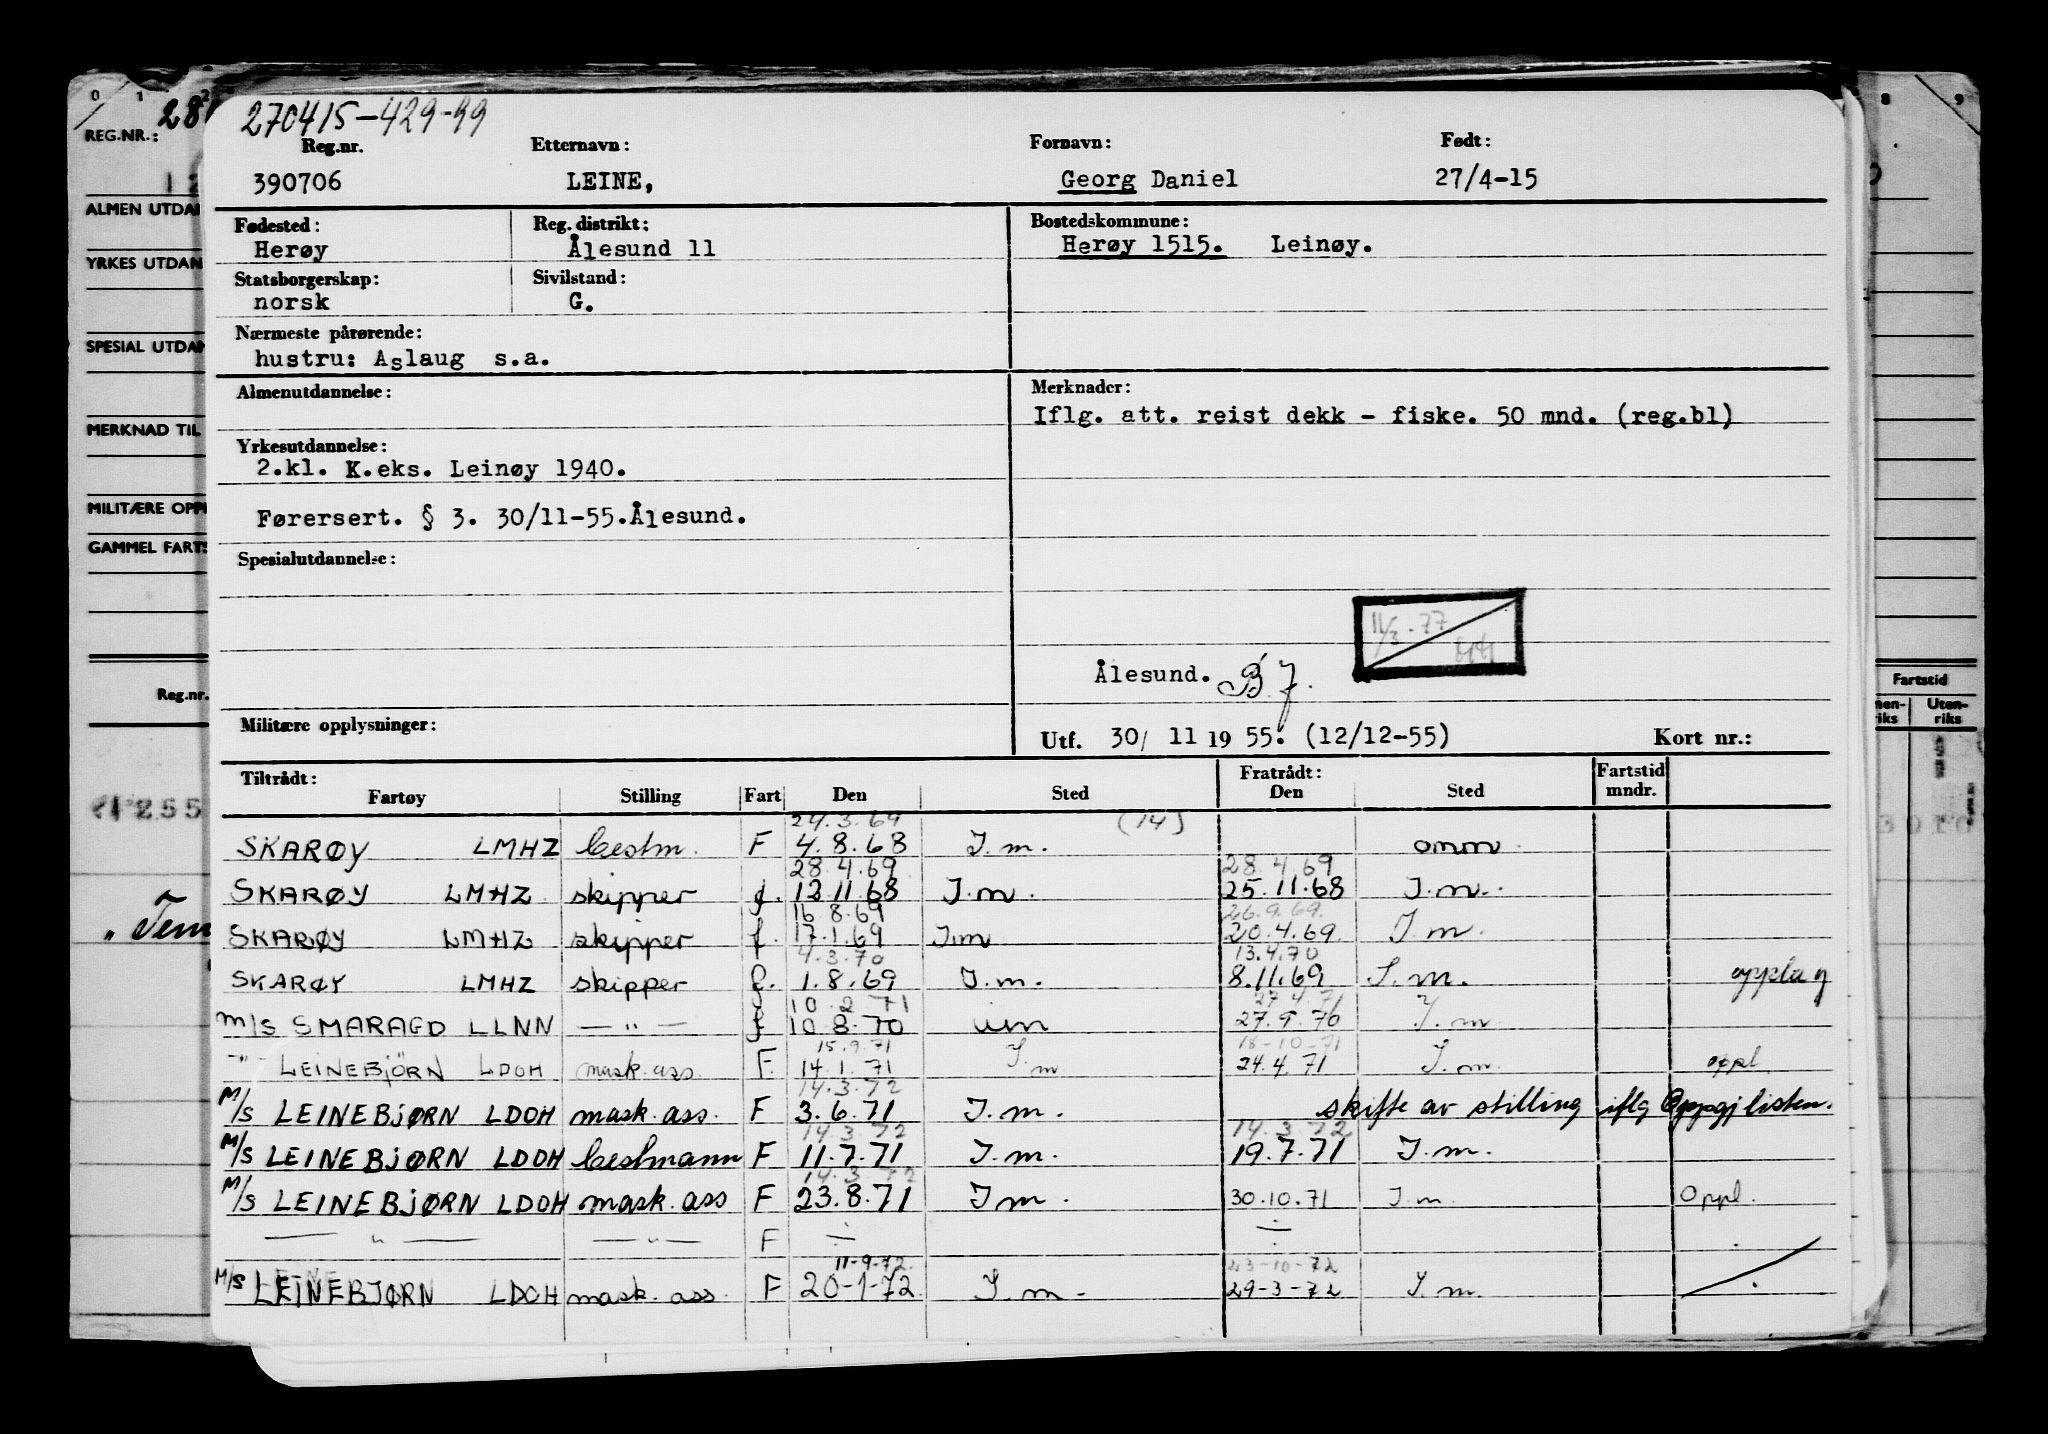 0 1 2 8 9
REG.NR.:
270415-429-99
Reg.nr. Etternavn: Fornavn: Født:
390706 LEINE, Georg Daniel 27/4-15
ALMEN UTDAN
Fødested: Reg. distrikt: Bostedskommune:
Herøy Ålesund 11 Herøy 1515. Leinøy.
YRKES UTDAN
Statsborgerskap: Sivilstand:
norsk G.
Nærmeste pårørende:
SPESIAL UTDAN
hustru: Aslaug s.a.
Almenutdannelse: Merknader:
Iflg. att. reist dekk - fiske. 50 mnd. (reg.bl)
MERKNAD TIL
Yrkesutdannelse:
2.kl. K.eks. Leinøy 1940.
MILITÆRE OPPL
Førersert. § 3. 30/11-55.Ålesund.
GAMMEL FARTS
Spesialutdannelse:
11/3-77
HH
Ålesund. B.J.
Reg.nr. Fartstid
Uten-
riks riks
Militære opplysninger:
Utf. 30/ 11 19 55. (12/12-55) Kort nr.:
Tiltrådt: Fratrådt: Fartstid
Fartøy Stilling Fart Den Sted Den Sted mndr.
24.3.69 (14)
SKARØY LMHZ bestm. F 4.8.68 I.m. omm
28.4.69 28.4.69
SKARØY LMHZ skipper f. 12.11.68 I.m. 25.11.68 I.m.
16.8.69 26.9.69.
SKARØY LMHZ skipper f. 17.1.69 I.m 20.4.69. I.m.
4.3.70 13.4.70
SKARØY LMHZ skipper f. 1.8.69 I.m. 8.11.69 I.m. opplag
10 2 71 27.4.71
m/s SMARAGD LLNN — " — f 10 8.70 um 27.9.70 I.m.
15.9.71 18-10-71
-"- LEINEBJÖRN LDOH mask.ass. F. 14.1.71 I.m. 24.4.71 I.m. oppl.
14.3.72
M/S LEINEBJØRN LDOH mask.ass. F 3.6.71 I.m. skifte av stilling iflg Oppgj listen.
14.3.72 14.3.72
M/S LEINEBJØRN LDOH bestmann F 11.7.71 I.m. 19.7.71 I.m.
14.3.72
M/S LEINEBJØRN LDOH mask.ass F 23.8.71 I.m. 30.10.71 I.m. Oppl.
— " — — " — F ÷ ÷
11-9-72. 23-10-72
M/S LEINEBJØRN LDOH mask.ass. F 20-1-72 I.m. 29-3-72 I.m.